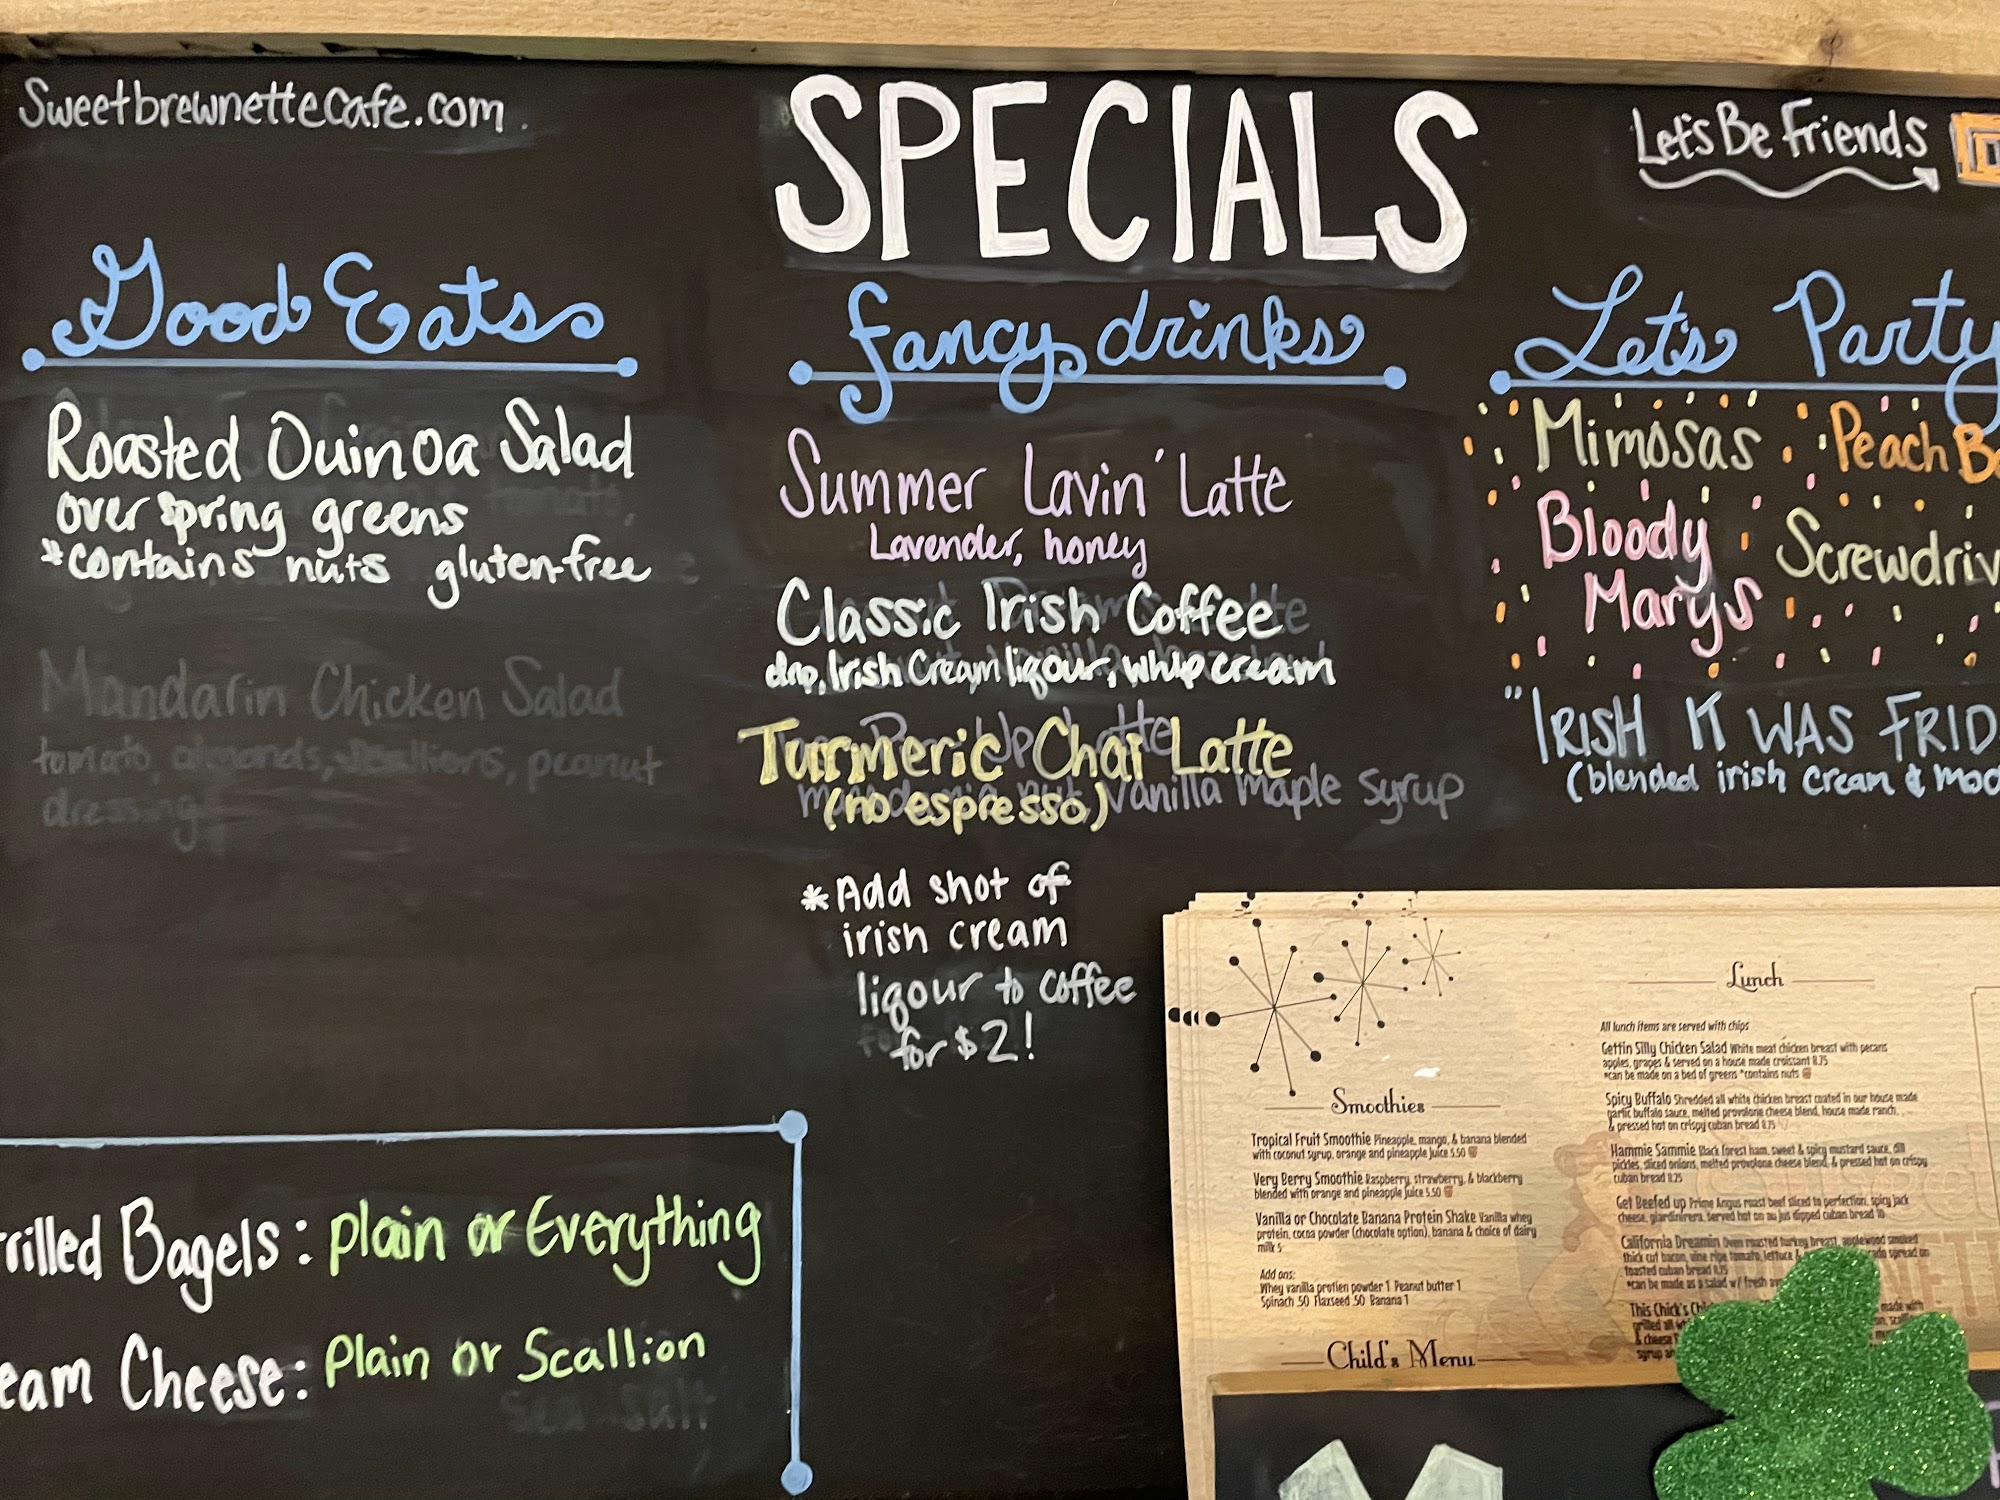 Sweetbrewnettecafe.com
SPECIALS
Let's Be Friends
Good Eats
Roasted Quinoa Salad
over spring greens
*contains nuts gluten-free
Mandarin Chicken Salad
tomato, almonds, scallions, peanut
dressing
fancy drinks
Summer Lavin' Latte
Lavender, honey
Classic Irish Coffee
drip, Irish Cream liqour, whip cream
Turmeric Chai Latte
(no espresso)
Vanilla Maple Syrup
*Add shot of
irish cream
liqour to coffee
for $2!
Let's Party
Mimosas
Peach
Bloody
Marys
"IRISH IT WAS
(blended irish cream &
Bagels: Plain or Everything
Cheese: Plain or Scallion
Sea Salt
Smoothies
Tropical Fruit Smoothie Pineapple, mango, & banana blended
with coconut syrup, orange and pineapple juice 5.50
Very Berry Smoothie Raspberry, strawberry, & blackberry
blended with orange and pineapple juice 5.50
Vanilla or Chocolate Banana Protein Shake Vanilla whey
protein, cocoa powder (chocolate option), banana & choice of dairy
milk 5
Add ons:
Whey vanilla protien powder 1 Peanut butter 1
Spinach .50 Flaxseed .50 Banana 1
Child's Menu
Lunch
All lunch items are served with chips
Gettin Silly Chicken Salad White meat chicken breast with pecans
apples, grapes & served on a house made croissant 8.75
*can be made on a bed of greens *contains nuts
Spicy Buffalo Shredded all white chicken breast coated in our house made
garlic buffalo sauce, melted provolone cheese blend, house made ranch,
& pressed hot on crispy cuban bread 8.75
Hammie Sammie Black forest ham, sweet & spicy mustard sauce, dill
pickles, sliced onions, melted provolone cheese blend, & pressed hot on crispy
cuban bread 8.25
Get Beefed up Prime Angus roast beef sliced to perfection, spicy jack
cheese, giardinirera. Served hot on au jus dipped cuban bread 10
California Dreamin Oven roasted turkey breast, applewood smoked
thick cut bacon, vine ripe tomato, lettuce & spread on
toasted cuban bread 8.75
*can be made as a salad w/ fresh
This Chick's
made with
grilled all
& cheese
syrup